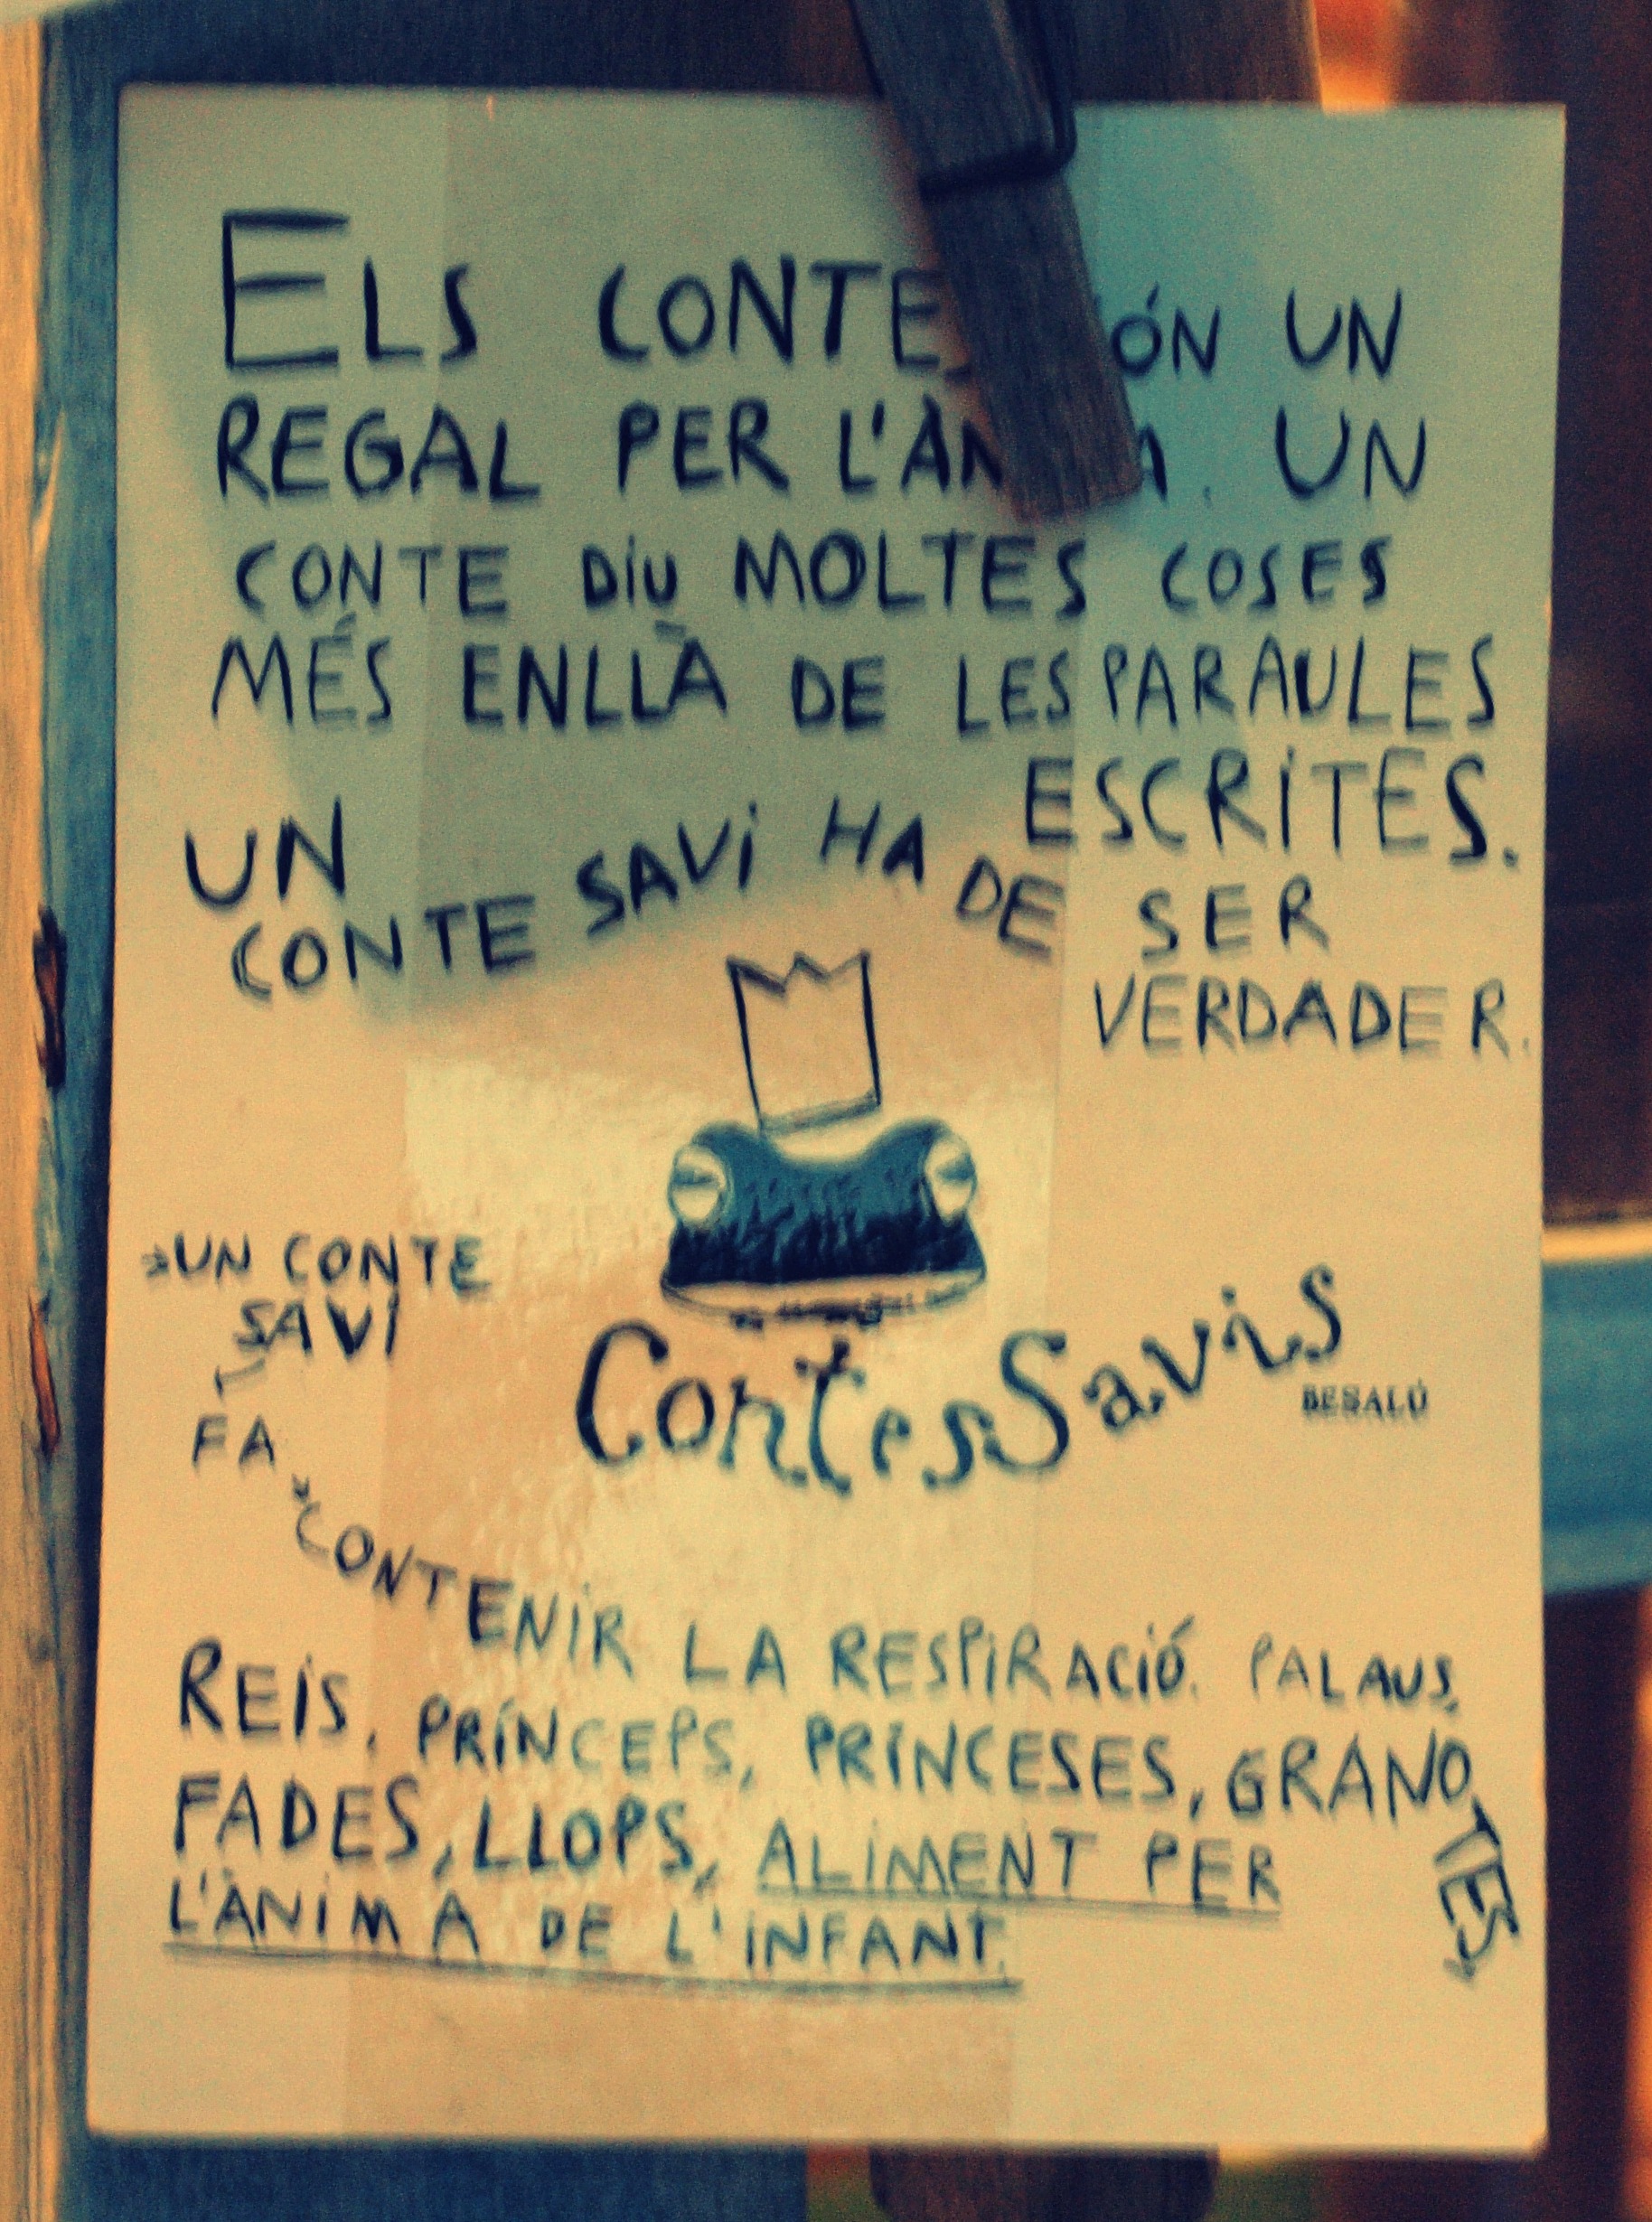 ELS CONTES SÓN UN
REGAL PER L'ÀNIMA. UN
CONTE DIU MOLTES COSES
MÉS ENLLÀ DE LES PARAULES
ESCRITES.
UN
CONTE SAVI HA DE SER
VERDADER.
UN CONTE
SAVI
FA
CONTENIR LA RESPIRACIÓ. PALAUS,
REIS, PRÍNCEPS, PRINCESES, GRANOTES,
FADES, LLOPS, ALIMENT PER
L'ÀNIMA DE L'INFANT.
ContesSavis
BESALÚ